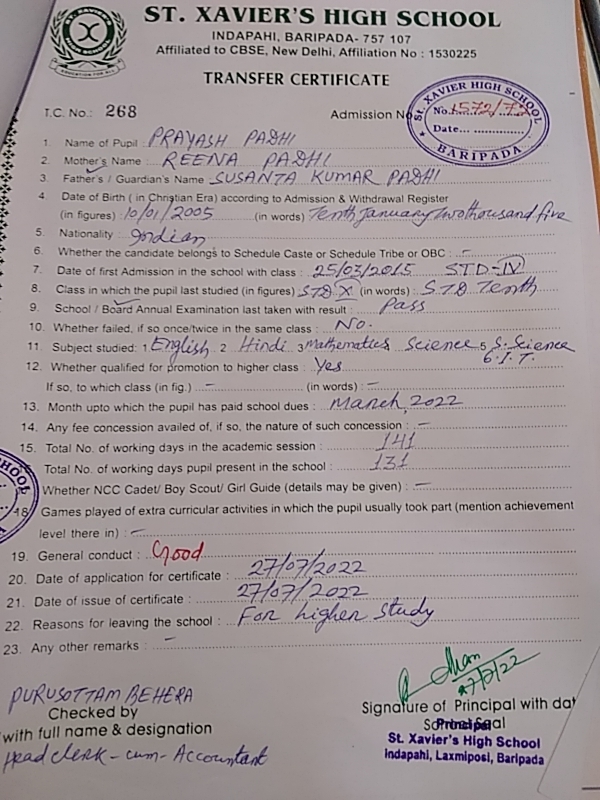 ST. XAVIER'S HIGH SCHOOL
INDAPAHI, BARIPADA- 757 107
Affiliated to CBSE, New Delhi, Affiliation No : 1530225
TRANSFER CERTIFICATE
T.C. No.: 268 Admission No
ST. XAVIER HIGH SCHOOL
No. 1572/72
Date...
BARIPADA
1. Name of Pupil PRAYASH PADHI
2. Mother's Name REENA PADHI
3. Father's / Guardian's Name SUSANTA KUMAR PADHI
4. Date of Birth ( in Christian Era) according to Admission & Withdrawal Register
(in figures) 10/01/2005 (in words) Tenth January two thousand five
5. Nationality Indian
6. Whether the candidate belongs to Schedule Caste or Schedule Tribe or OBC : -
7. Date of first Admission in the school with class : 25/03/2015 STD-IV
8. Class in which the pupil last studied (in figures) STD X (in words) STD Tenth
9. School / Board Annual Examination last taken with result : Pass
10. Whether failed, if so once/twice in the same class : No.
11. Subject studied: 1 English 2 Hindi 3 Mathematics Science 5 S. Science
6. I.T.
12. Whether qualified for promotion to higher class : Yes
If so, to which class (in fig.) - (in words) : -
13. Month upto which the pupil has paid school dues : March, 2022
14. Any fee concession availed of, if so, the nature of such concession : -
15. Total No. of working days in the academic session : 141
Total No. of working days pupil present in the school : 131
Whether NCC Cadet/ Boy Scout/ Girl Guide (details may be given) : -
18. Games played of extra curricular activities in which the pupil usually took part (mention achievement
level there in) : -
19. General conduct : Good
20. Date of application for certificate : 27/07/2022
21. Date of issue of certificate : 27/07/2022
22. Reasons for leaving the school : For higher study
23. Any other remarks : -
27/7/22
PURUSOTTAM BEHERA
Checked by
with full name & designation
Head clerk - cum - Accountant
Signature of Principal with dat
School Seal
Principal
St. Xavier's High School
Indapahi, Laxmiposi, Baripada